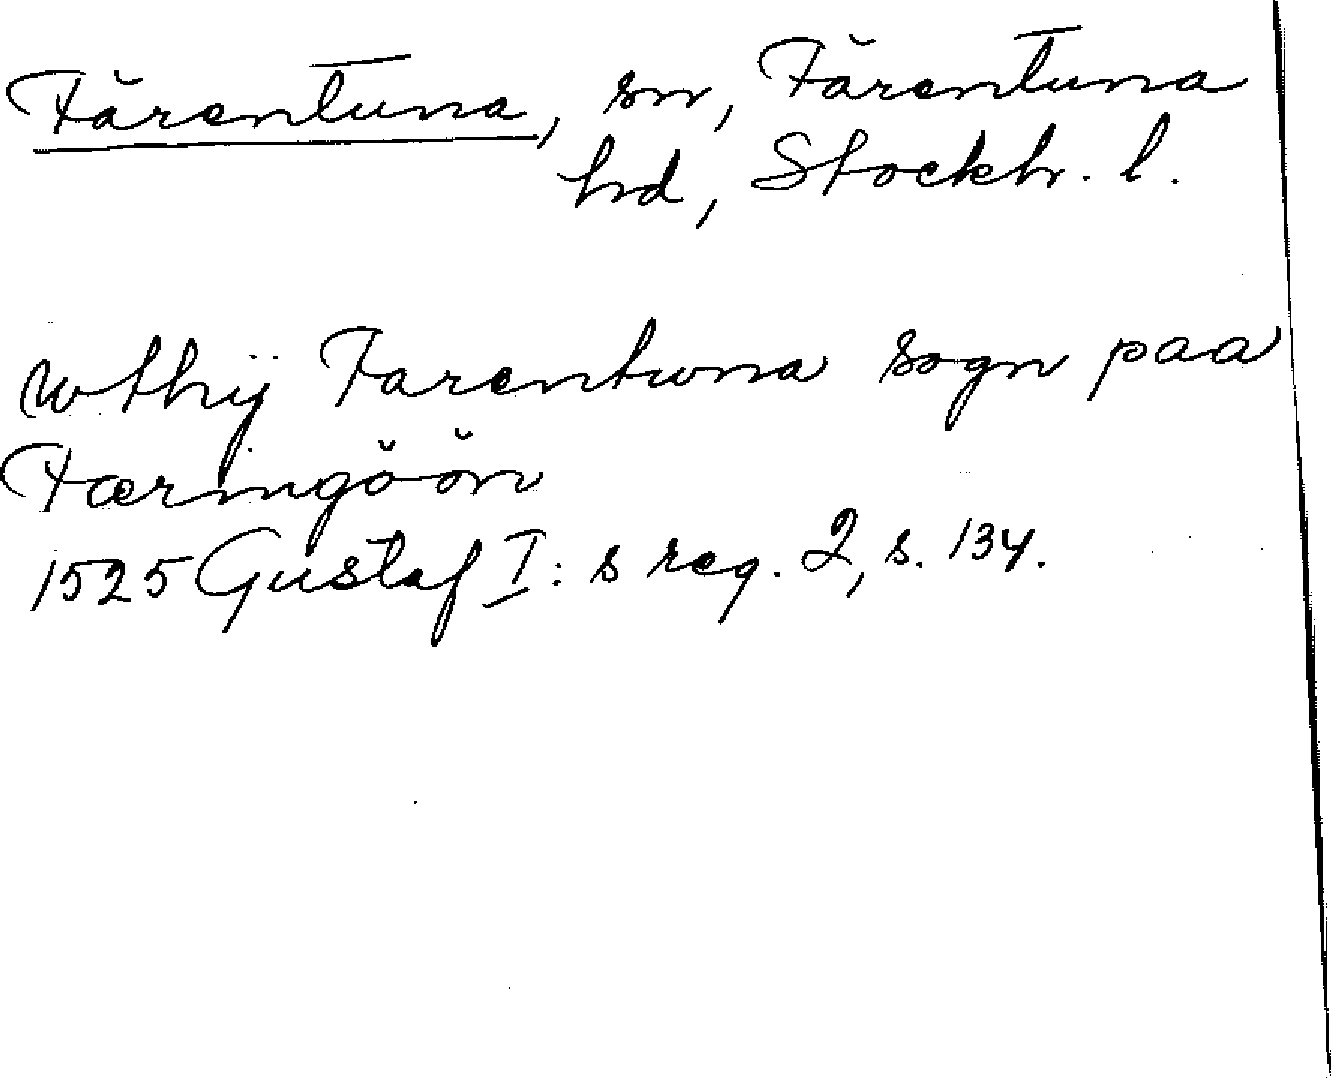 Färentuna, sn, Färentuna
hd, Stockh. l.
wthij Farentwna sogn paa
Færingöön
1525 Gustaf I:s reg. 2, s. 134.